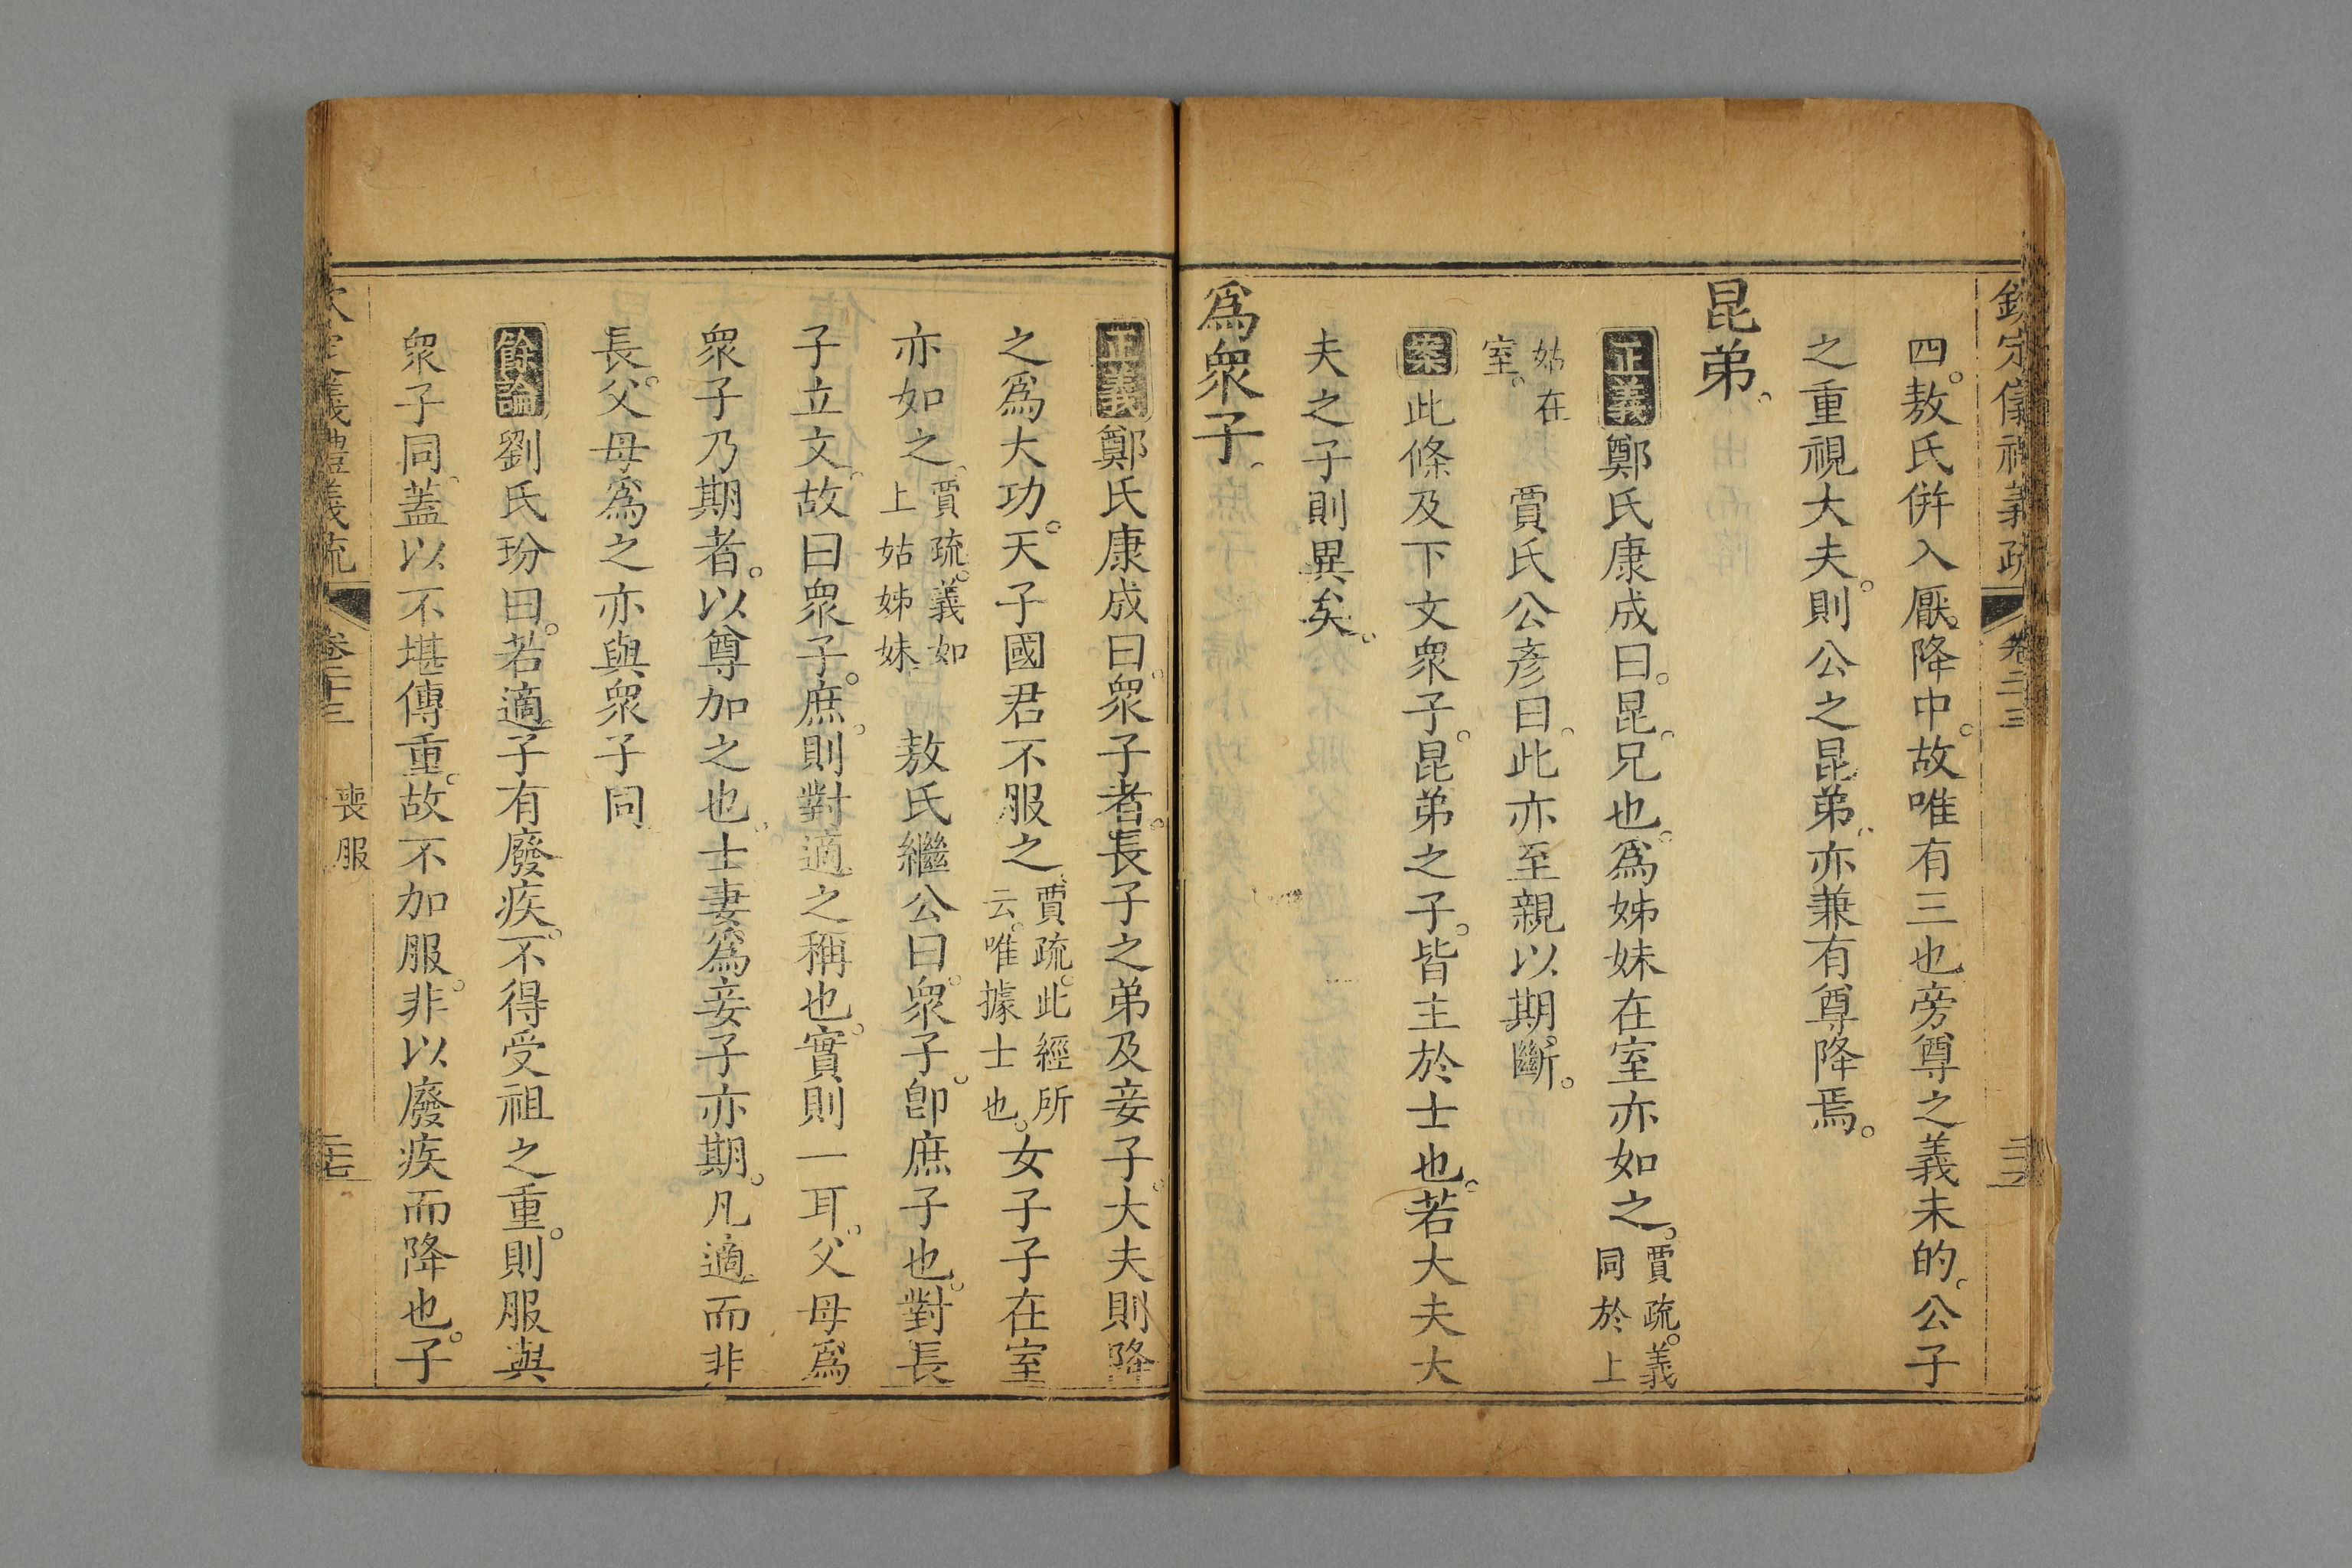 欽定儀禮義疏 卷二十三
四。敖氏併入厭降中。故唯有三也旁尊之義未的。公子
之重視大夫。則公之昆弟。亦兼有尊降焉。
昆弟。
正義 鄭氏康成曰。昆。兄也。爲姊妹在室亦如之。賈疏。義同於上
姑在室。 賈氏公彦曰。此亦至親以期斷。
案 此條及下文衆子。昆弟之子。皆主於士也。若大夫大
夫之子則異矣。
爲衆子。
正義 鄭氏康成曰。衆子者。長子之弟及妾子。大夫則降
之爲大功。天子國君不服之。賈疏。此經所云。唯據士也。女子子在室
亦如之。賈疏。義如上姑姊妹 敖氏繼公曰。衆子。卽庶子也。對長
子立文。故曰衆子。庶。則對適之稱也。實則一耳。父母爲
衆子乃期者。以尊加之也。士妻爲妾子亦期。凡適而非
長。父母爲之亦與衆子同
餘論 劉氏玢曰。若適子有廢疾。不得受祖之重。則服與
衆子同。蓋以不堪傳重。故不加服。非以廢疾而降也。子
義禮義疏 卷二十三 喪服 三七